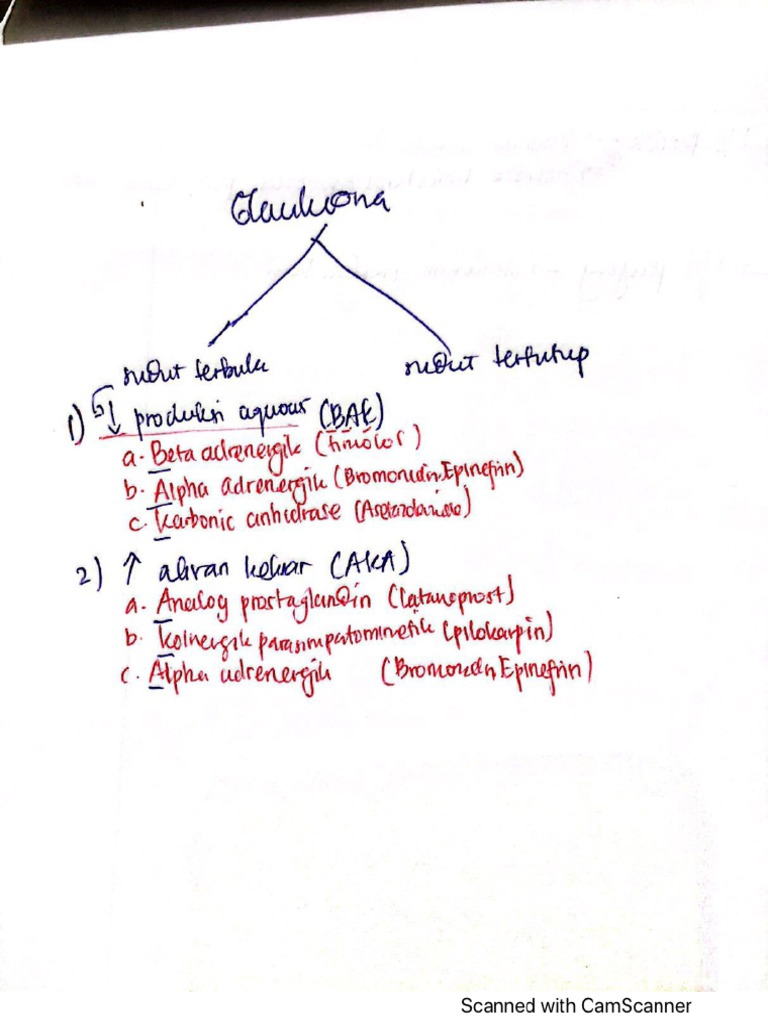 Glaukoma
sudut terbuka
sudut tertutup
1) ↓ produksi aquous (BAK)
a. Beta adrenergik (timolol)
b. Alpha adrenergik (Bromonidin, Epinefrin)
c. Karbonic anhidrase (Asetazolamide)
2) ↑ aliran keluar (AKA)
a. Analog prostaglandin (latanoprost)
b. Kolinergik parasimpatomimetik (pilokarpin)
c. Alpha adrenergik (Bromonidin, Epinefrin)
Scanned with CamScanner